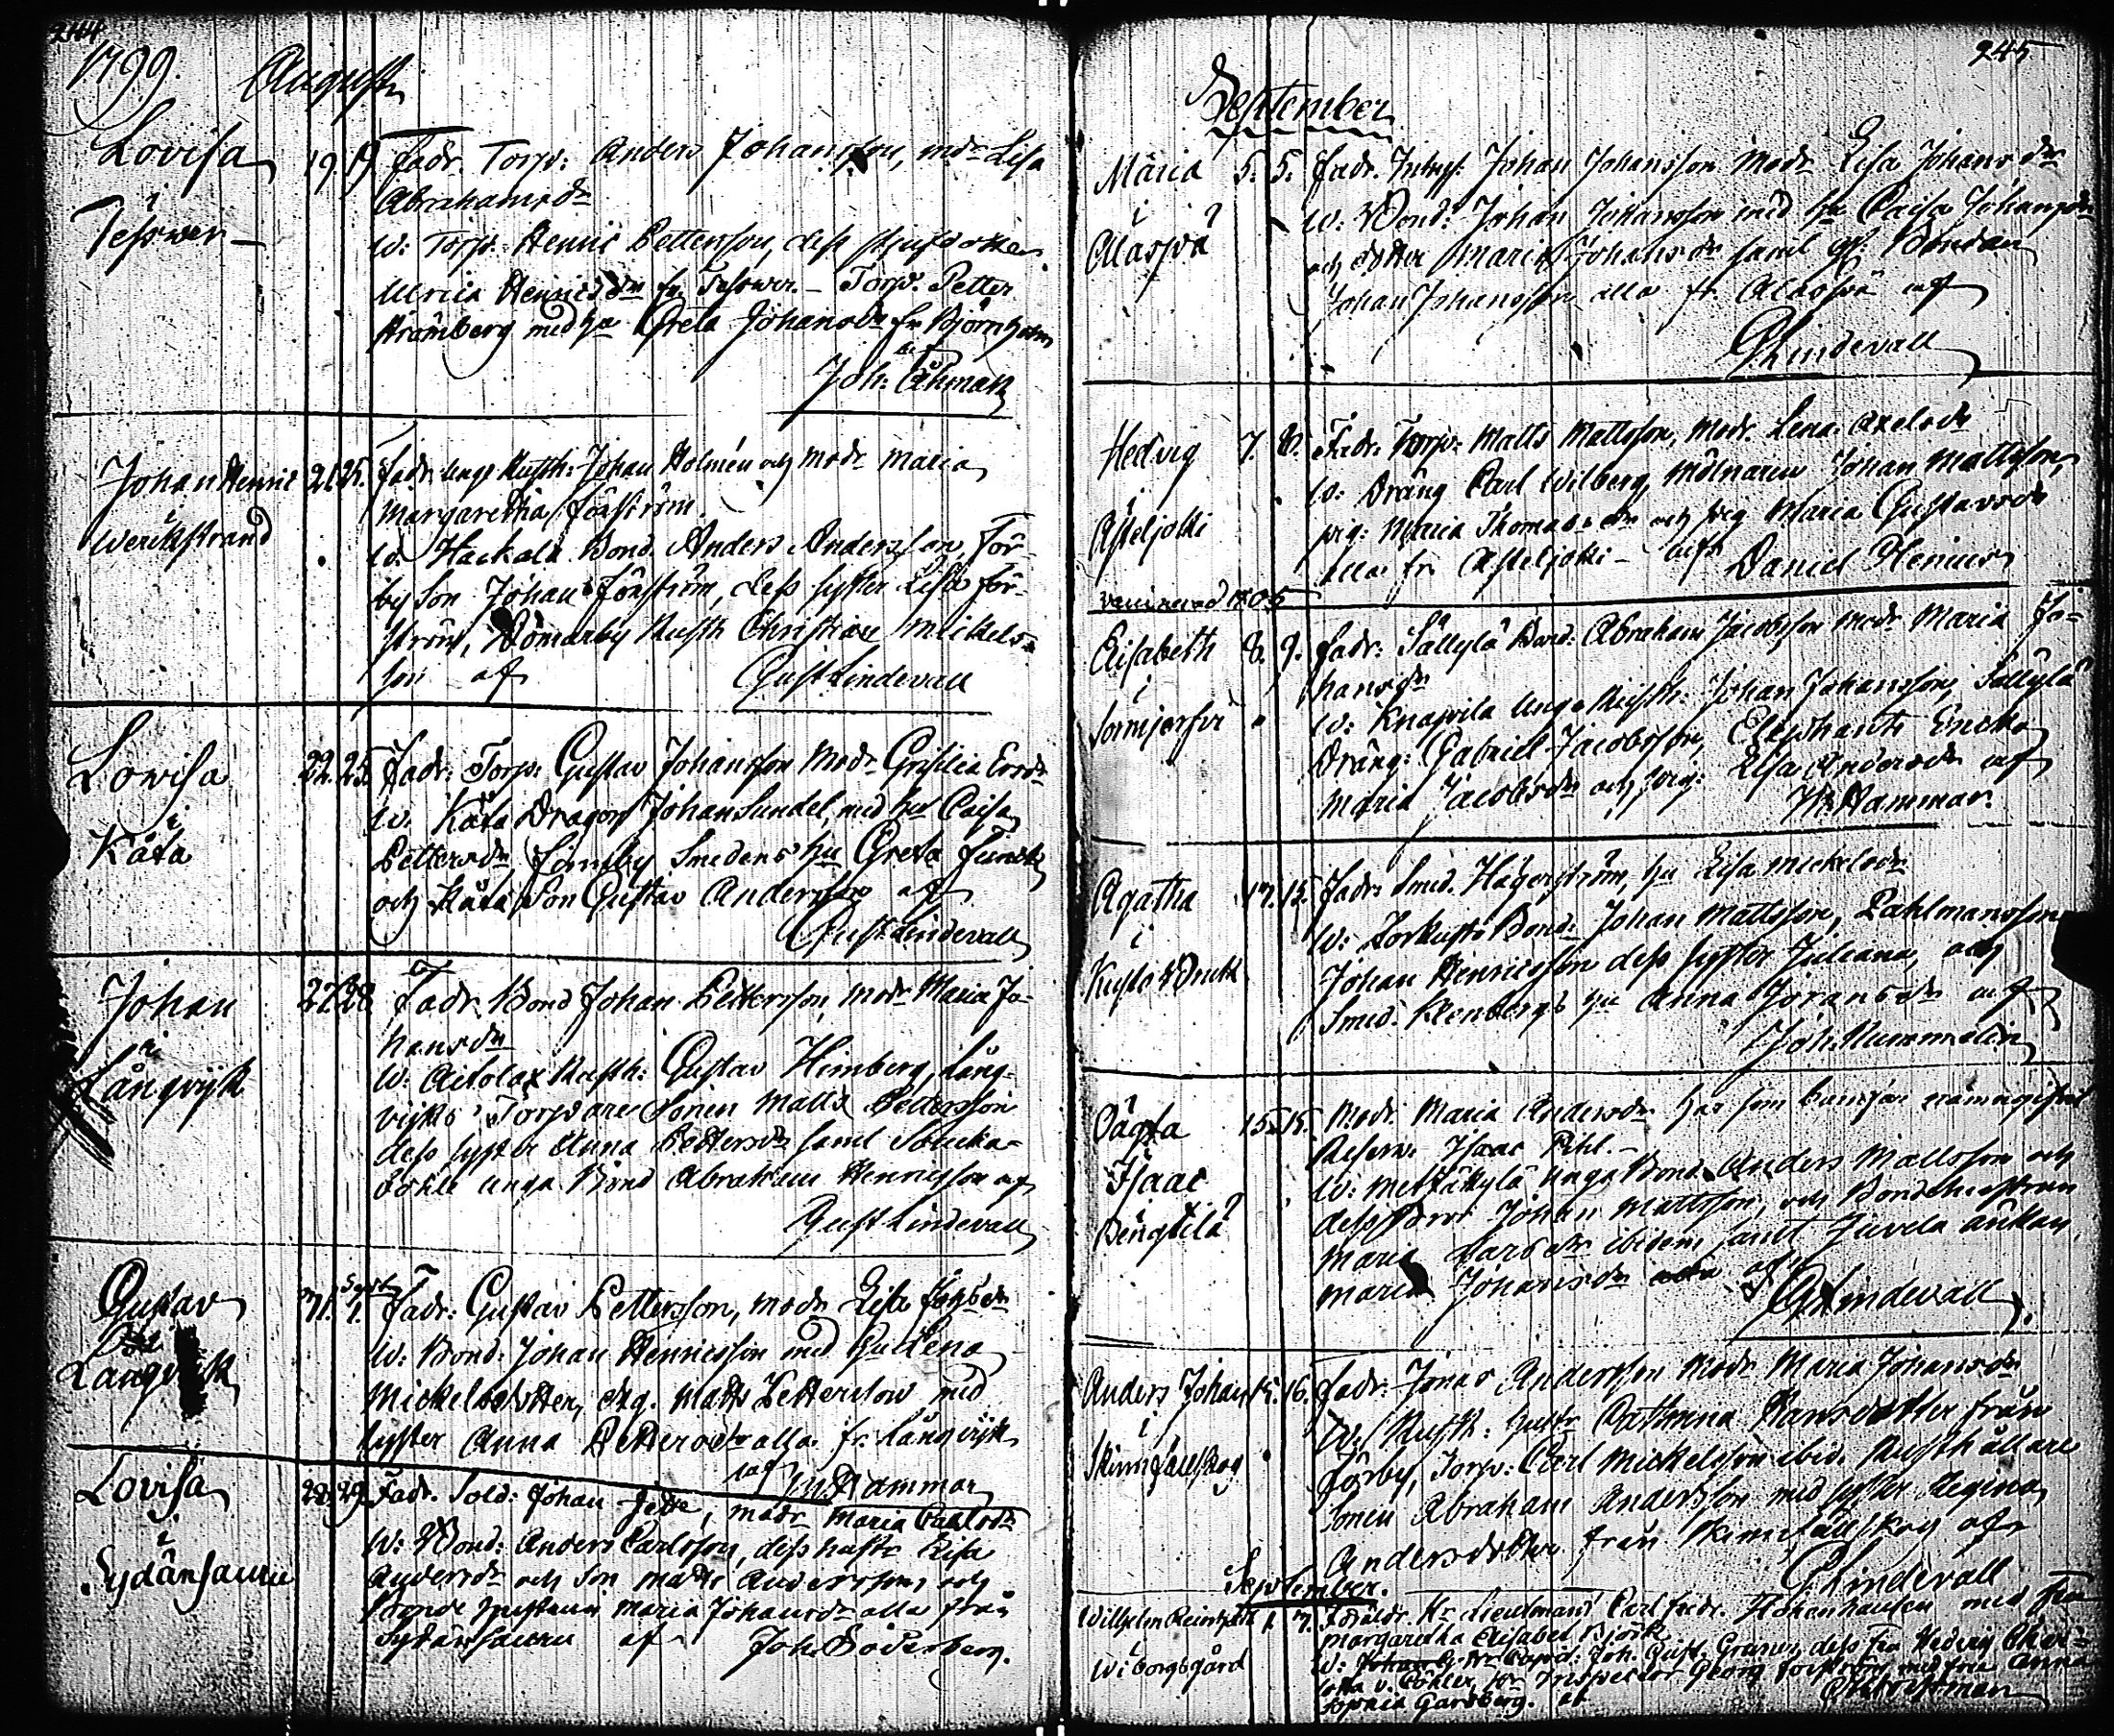 244
1799. Augusti
Lovisa
i
Teswer
19. 19. Fadr. Torp: Anders Johansson, mdr Lisa
Abrahamsdr
W: Torp: Henric Pettersson, dess
Ulrica Henricsdr fr. Teswer. - Torp. Petter
Stråmberg med hu Greta Johansdr fr Björnholm
af
Joh: Åhman
Johan Henric
i
Werikstrand
21. 25. Fadr. unge Rusth: Johan Holmén och modr Maria
Margaretha Forström.
W. Hackala Bond. Anders Andersson, För-
by Son Johan Forström, dess syster Lisa For-
ström, Dömarby Rusth Christian Mickels-
son af Gust Lindevall
Lovisa
i
Kåta
22. 25. Fadr. Torp: Gustav Johansson Modr Ersdr
W. Kåta Dragon Johan Sundel, med hu Caisa
Pettersdr Finnby Smedens hu Greta
och Kåta Son Gustav Andersson af
Gust Lindevall
Johan
i
Långvijk
27. 28. Fadr. Bond Johan Pettersson, modr Maria Jo-
hansdr
W. Rusth: Gustav Himberg, Lång-
vijks Torpare Sonen Matts Pettersson
dess syster Anna Pettersdr samt
böhle unga Bond Abraham Henricsson af
Gust Lindevall
Gustav
Långvijk
31. Sept. 1. Fadr: Gustav Pettersson, modr Lisa
W: Bond. Johan Henricsson med hu Lena
Mickelsdotter, drg. Matts Pettersson med
syster Anna Pettersdr alla fr. Långvijk
af Hammar
Lovisa
i
Sydänsauru
28. 29. Fadr. Sold: Johan, modr Maria Carlsdr
W: Bond: Anders Carlsson, dess hustr Lisa
Andersdr och Son Matts Andersson, och
Bonde hustrun Maria Johansdr alla från
Sydänsauru af Joh Söderberg.
245
September
Maria
i
5. 5. Fadr. Inhys: Johan Johansson Modr Lisa Johansdr
W: Bond: Johan Johansson med hu Caisa Johansdr
och dotter Maria Johansdr samt gl: Bondan
Johan Johansson alla fr. af
G Lindevall
Hedvig
i
Asteljoki
7. 8. Fadr. Torp: Matts Mattsson, Modr. Lena Axelsdr
W: Dräng Carl Wilberg, Mölnaren Johan Mattsson,
pig: Maria Thomasdr och pig Maria Gustavsdr
alla fr. Asteljoki - af Daniel Henius
vaccinerad 1805
Elisabeth
i
Sornjerfvi
8. 9. Fadr: Sällylä Bond: Abraham Jacobsson modr Maria Jo-
hansdr
W: Knapila Unga Rusth: Johan Johansson, Sällylä
Dräng: Gabriel Jacobsson, Elephants Enckan
Maria Jacobsdr och pig: Lisa Andersdr af
Hammar.
Agatha
i
Kusto Bruk
15. Fadr. Smed. Hägerström, hu Lisa Mickelsdr
W: Bond: Johan Mattsson, Pahlmansson
Johan Henricsson dess syster Juliana, och
Smed. hu Anna Göransdr af
Joh. Nummelin
Oägta
Isaac
Pengtilä
15. 15. Modr. Maria Andersdr har som barnfar namngifvit
Reserv. Isaac Pihl.
W: unga Bond Anders Mattsson och
dess Bror Johan Mattsson, och Bond hustrun
Maria Larsdr ibidem samt Juvela änkan
Maria Johansdr af
G Lindevall.
Anders Johan
i
Skinnfällskog
15. 16. Fadr: Jonas Andersson Modr Maria Johansdr
W: Rusth: hustr Cathrina Hansdotter från
Förby, Torp: Carl Mickelsson ibid. Rusthållare
Sonen Abraham Andersson med syster Regina
Andersdotter från Skinnfällskog af
G Lindevall
September.
Wilhelm Reinhold
Wiborgsgård
1. 7. Föräldr. Hr Lieutnant Carl Fredr. Hohenhausen med Fru
Margaretha Elisabet Björk
W: Hr Capit: Joh. Gust. Graner, dess Fru Hedvig Char-
lotta v. Köhler, Hr Inspector Georg Forström med fru Anna
Sophia Gardberg. af